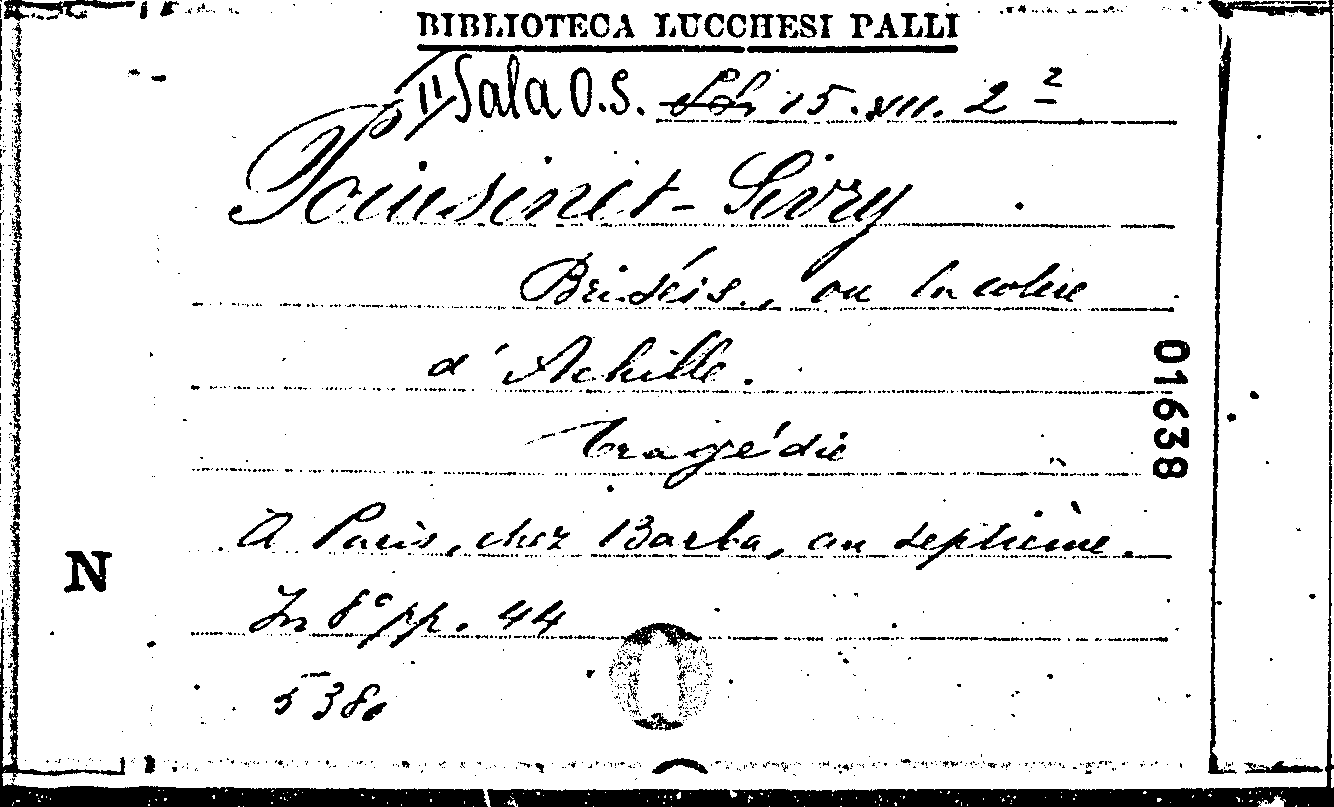 BIBLIOTECA LUCCHESI PALLI
II Sala O.S. 15. XII. 2 2
Poinsinet-Sivry
Briséis, ou la colère
d'Achille.
tragédie
A Paris, chez Barba, an septième.
In 8° pp. 44
5380
01638
N